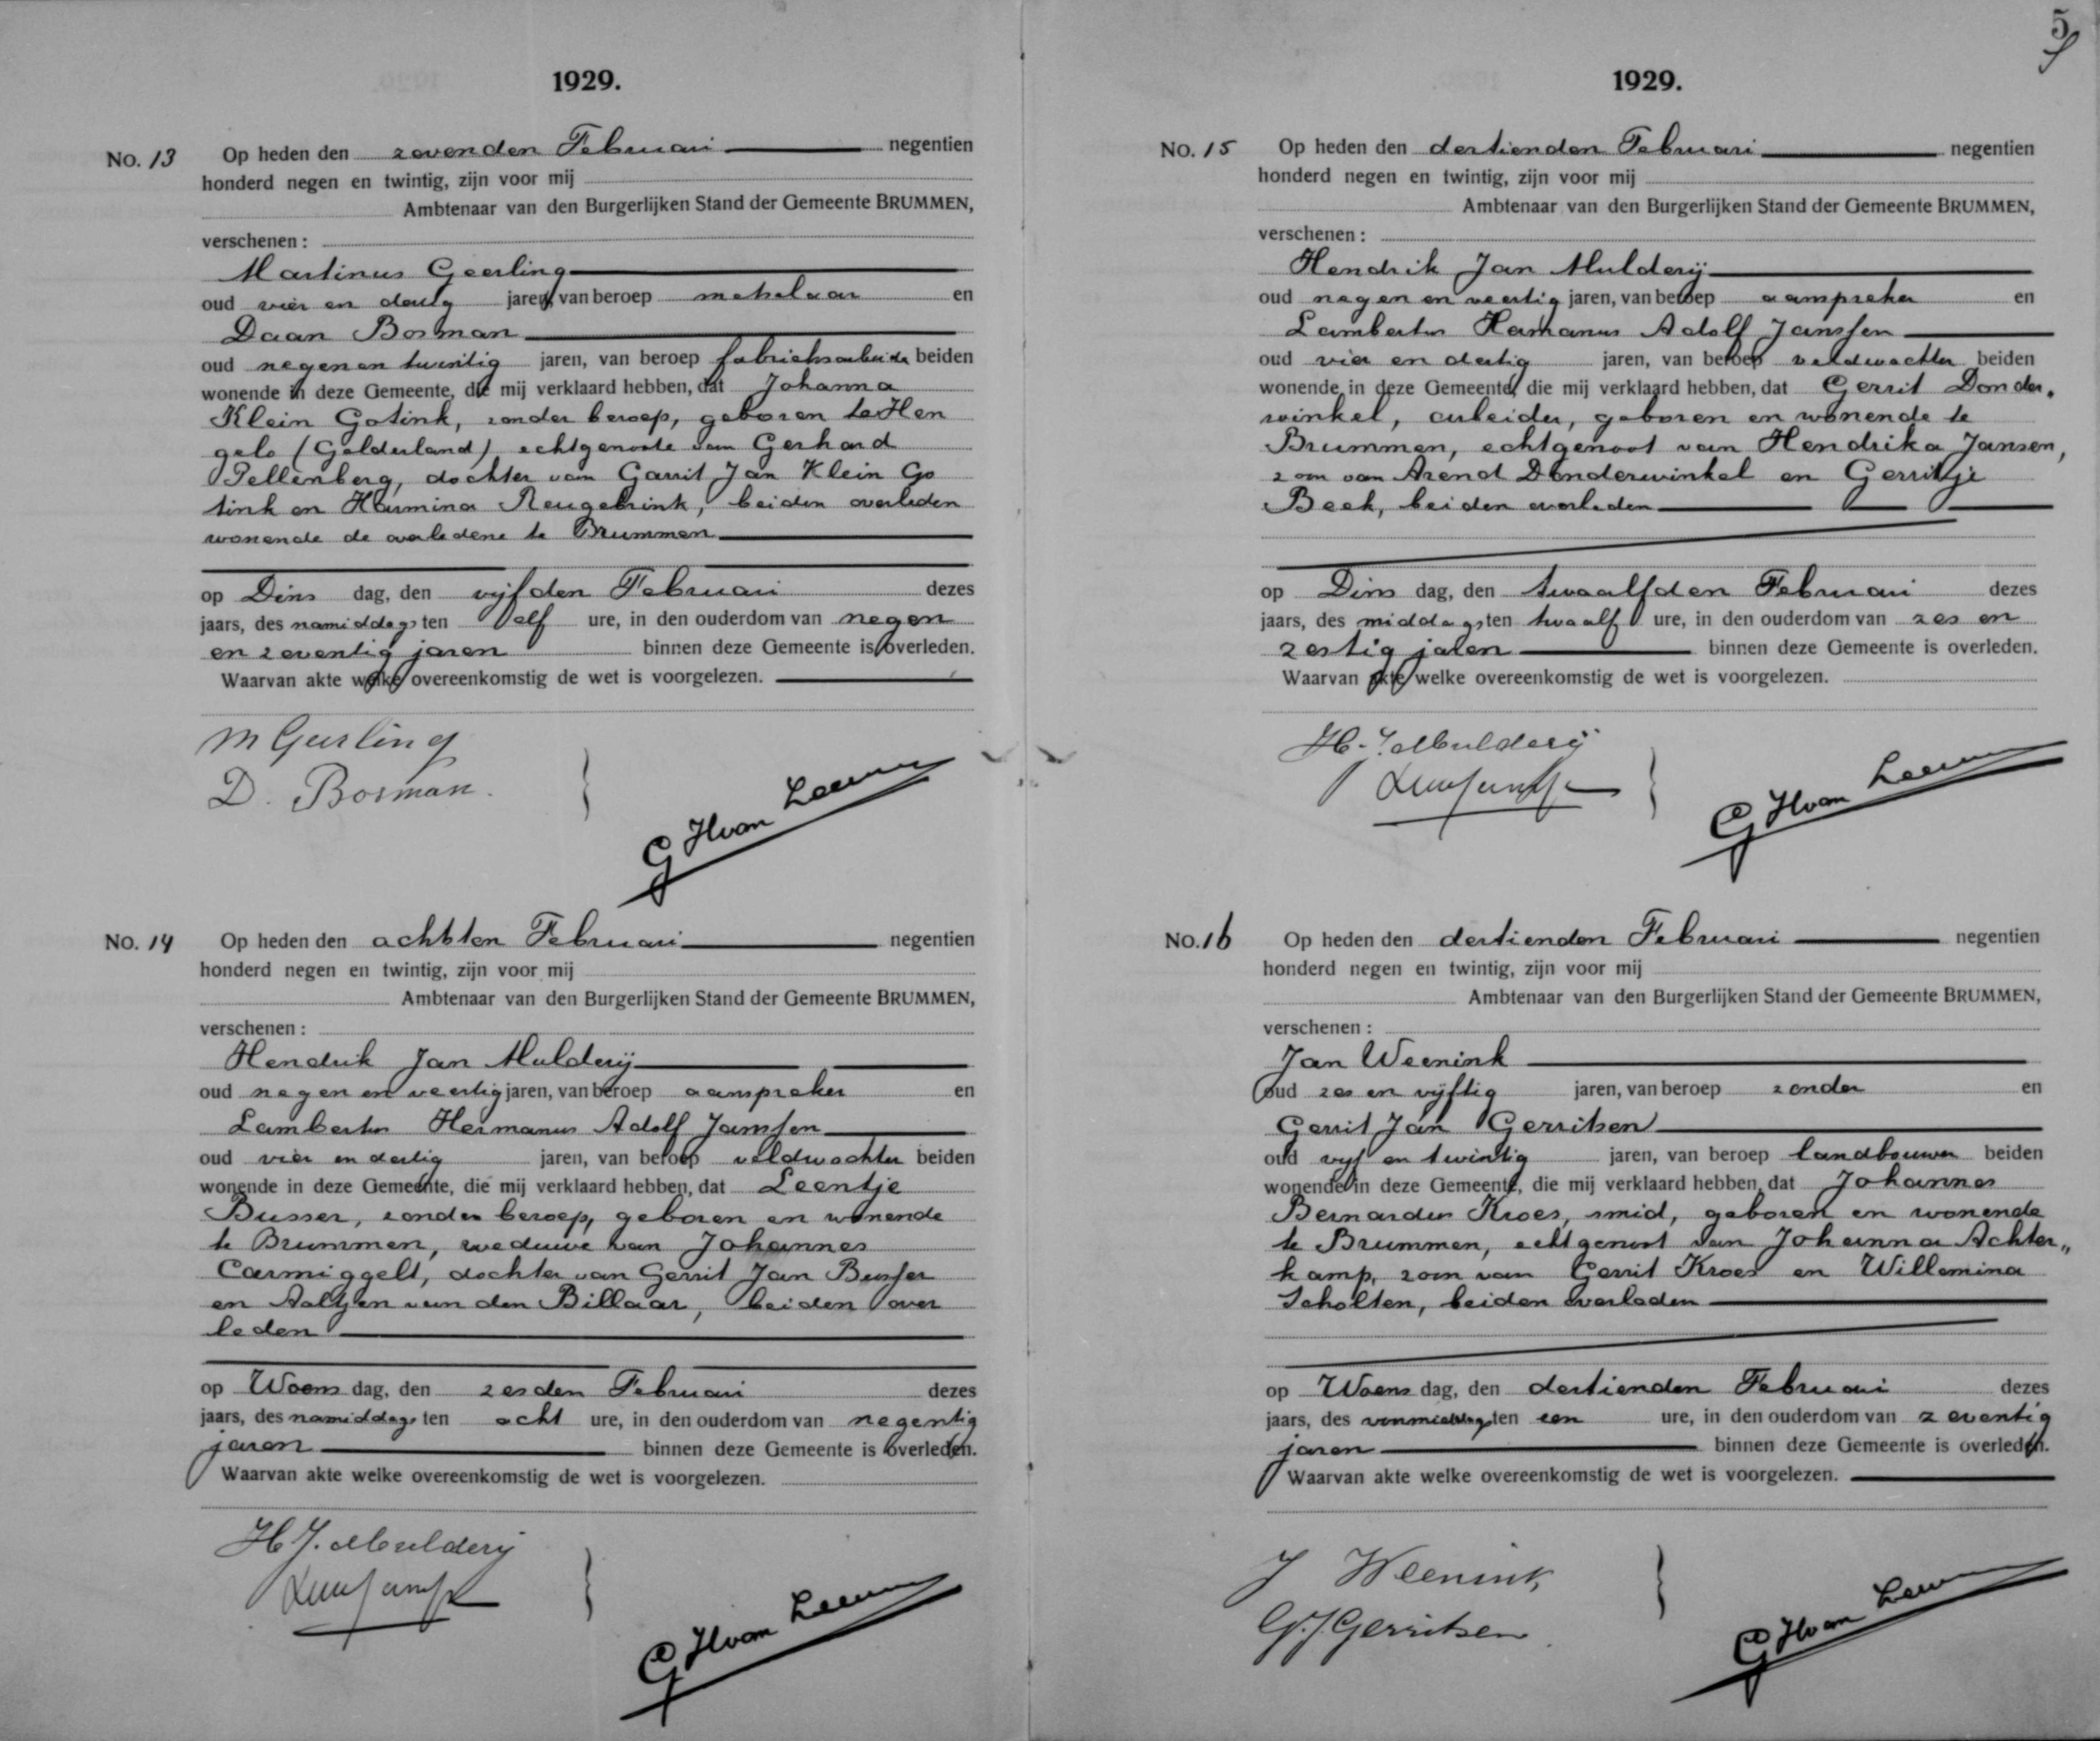 1929.
No. 13 Op heden den zevenden Februari negentien
honderd negen en twintig, zijn voor mij
Ambtenaar van den Burgerlijken Stand der Gemeente BRUMMEN,
verschenen :
Martinus Geerling
oud vier en dertig jaren, van beroep metselaar en
Daan Bosman
oud negen en twintig jaren, van beroep fabrieksarbeider beiden
wonende in deze Gemeente, die mij verklaard hebben, dat Johanna
Klein Gotink, zonder beroep, geboren te Hen
gelo (Gelderland), echtgenoote van Gerhard
Pellenberg, dochter van Garrit Jan Klein Go
tink en Harmina Reugebrink, beiden overleden
wonende de overledene te Brummen
op Dins dag, den vijfden Februari dezes
jaars, des namiddags ten elf ure, in den ouderdom van negen
en zeventig jaren binnen deze Gemeente is overleden.
Waarvan akte welke overeenkomstig de wet is voorgelezen.
M Geerling
D. Bosman.
G H van Leeuwen
No. 14 Op heden den achtsten Februari negentien
honderd negen en twintig, zijn voor mij
Ambtenaar van den Burgerlijken Stand der Gemeente BRUMMEN,
verschenen :
Hendrik Jan Mulderij
oud negen en veertig jaren, van beroep aanspreker en
Lambertus Hermanus Adolf Janssen
oud vier en dertig jaren, van beroep veldwachter beiden
wonende in deze Gemeente, die mij verklaard hebben, dat Leentje
Busser, zonder beroep, geboren en wonende
te Brummen, weduwe van Johannes
Carmiggelt, dochter van Gerrit Jan Busser
en Aaltjen van den Billaar, beiden over
leden
op Woens dag, den zesden Februari dezes
jaars, des namiddags ten acht ure, in den ouderdom van negentig
jaren binnen deze Gemeente is overleden.
Waarvan akte welke overeenkomstig de wet is voorgelezen.
H J. Mulderij
G H van Leeuwen
5
1929.
No. 15 Op heden den dertienden Februari negentien
honderd negen en twintig, zijn voor mij
Ambtenaar van den Burgerlijken Stand der Gemeente BRUMMEN,
verschenen :
Hendrik Jan Mulderij
oud negen en veertig jaren, van beroep aanspreker en
Lambertus Hermanus Adolf Janssen
oud vier en dertig jaren, van beroep veldwachter beiden
wonende in deze Gemeente, die mij verklaard hebben, dat Gerrit Donder„
winkel, arbeider, geboren en wonende te
Brummen, echtgenoot van Hendrika Jansen,
zoon van Arend Donderwinkel en Gerritje
Beek, beiden overleden
op Dins dag, den twaalfden Februari dezes
jaars, des middags ten twaalf ure, in den ouderdom van zes en
zestig jaren binnen deze Gemeente is overleden.
Waarvan akte welke overeenkomstig de wet is voorgelezen.
H. J. Mulderij
G H van Leeuwen
No. 16 Op heden den dertienden Februari negentien
honderd negen en twintig, zijn voor mij
Ambtenaar van den Burgerlijken Stand der Gemeente BRUMMEN,
verschenen :
Jan Weenink
oud zes en vijftig jaren, van beroep zonder en
Gerrit Jan Gerritsen
oud vijf en twintig jaren, van beroep landbouwer beiden
wonende in deze Gemeente, die mij verklaard hebben, dat Johannes
Bernardus Kroes, smid, geboren en wonende
te Brummen, echtgenoot van Johanna Achter„
kamp, zoon van Gerrit Kroes en Willemina
Scholten, beiden overleden
op Woens dag, den dertienden Februari dezes
jaars, des voormiddags ten een ure, in den ouderdom van zeventig
jaren binnen deze Gemeente is overleden.
Waarvan akte welke overeenkomstig de wet is voorgelezen.
J Weenink
G. J Gerritsen
G H van Leeuwen